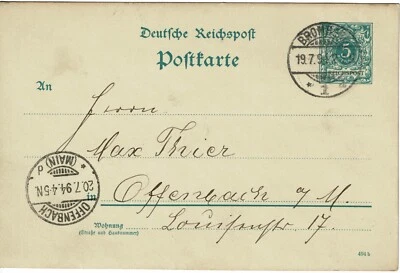 Deutsche Reichspost
Postkarte
5
REICHSPOST
19.7.9
1
An
Herrn
Max Thier
OFFENBACH
(MAIN)
20.7.94.4-5N.
in Offenbach a/M.
Wohnung
(Straße und Hausnummer)
Louisenstr. 17.